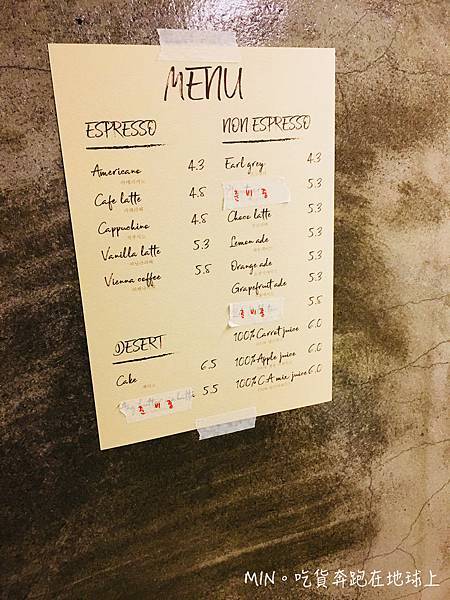 MENU
ESPRESSO
Americano 4.3
아메리카노
Cafe latte 4.8
카페라떼
Cappuchino 4.8
카푸치노
Vanilla latte 5.3
바닐라라떼
Vienna coffee 5.8
비엔나커피
DESERT
Cake 6.5
케이크
준비중 5.5
NON ESPRESSO
Earl grey 4.3
준비중 5.3
Choco latte 5.3
초코라떼
Lemon ade 5.3
Orange ade 5.3
Grapefruit ade 5.3
준비중 5.5
100% Carrot juice 6.0
100% Apple juice 6.0
100% C.A mix juice 6.0
MIN。吃貨奔跑在地球上